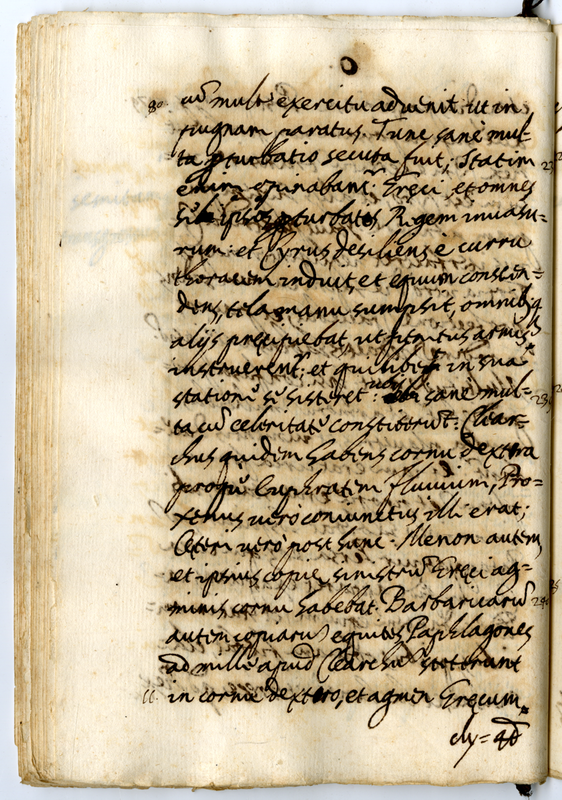 cū mult exercitu advenit ut in
pugnam paratus. Tunc sanè mul-
ta pturbatio secuta fuit; Statim
enim opinabant: Greci, et omnes
pturbatos Regem invasu-
rum: et Cyrus desiliens è curru
thoracem induit, et equum conscen-
dens, tela manu sumpsit, omnibq
alijs precipiebat, ut penitus armis
instruerent: et quilibet in sua
statione se sisteret: ubi sane mul-
ta cū celeritate constiterūt: Clear-
chus quidem habens cornu dextera
propè Euphratem fluvium, Pro-
xenus verò coniunctus illi erat;
Ceteri verò post hunc. Menon autem,
et ipsius copie sinistrū Greci ag-
minis cornu habebat. Barbaricarū
autem copiarū equites Paphlagones
ad mille apud Clearchū steterunt
in cornu dextero, et agmen Grecum